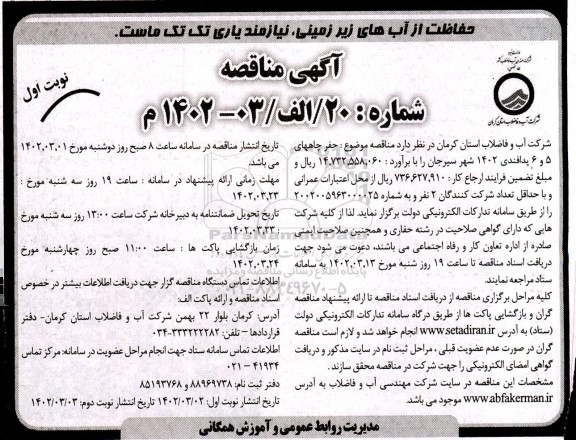 حفاظت از آب های زیر زمینی، نیازمند یاری تک تک ماست.
نوبت اول
آگهی مناقصه
شماره: ۲۰/الف/۰۳-۱۴۰۲ م
شرکت آب و فاضلاب استان کرمان
شرکت آب و فاضلاب استان کرمان در نظر دارد مناقصه موضوع: حفر چاههای
۵ و ۶ پدافندی ۱۴۰۲ شهر سیرجان را با برآورد: ۱۴,۷۳۲,۵۵۸,۰۶۰ ریال و
مبلغ تضمین فرایند ارجاع کار: ۷۳۶,۶۲۷,۹۱۰ ریال از محل اعتبارات عمرانی
و با حداقل تعداد شرکت کنندگان ۲ نفر و به شماره ۲۰۰۲۰۰۵۹۶۳۰۰۰۰۲۵
را از طریق سامانه تدارکات الکترونیکی دولت برگزار نماید. لذا از کلیه شرکت
هایی که دارای گواهی صلاحیت در رشته حفاری و همچنین صلاحیت ایمنی
صادره از اداره تعاون کار و رفاه اجتماعی می باشند، دعوت می شود جهت
دریافت اسناد مناقصه تا ساعت ۱۹ روز شنبه مورخ ۱۴۰۲,۰۳,۱۳ به سامانه
ستاد مراجعه نمایند.
کلیه مراحل برگزاری مناقصه از دریافت اسناد مناقصه تا ارائه پیشنهاد مناقصه
گران و بازگشایی پاکت ها از طریق درگاه سامانه تدارکات الکترونیکی دولت
(ستاد) به آدرس www.setadiran.ir انجام خواهد شد و لازم است مناقصه
گران در صورت عدم عضویت قبلی، مراحل ثبت نام در سایت مذکور و دریافت
گواهی امضای الکترونیکی را جهت شرکت در مناقصه محقق سازند.
مشخصات این مناقصه در سایت شرکت مهندسی آب و فاضلاب به آدرس
www.abfakerman.ir موجود می باشد.
تاریخ انتشار مناقصه در سامانه ساعت ۸ صبح روز دوشنبه مورخ ۱۴۰۲,۰۳,۰۱
می باشد.
مهلت زمانی ارائه پیشنهاد در سامانه: ساعت ۱۹ روز سه شنبه مورخ:
۱۴۰۲,۰۳,۲۳
تاریخ تحویل ضمانتنامه به دبیرخانه شرکت ساعت ۱۳:۰۰ روز سه شنبه مورخ
۱۴۰۲,۰۳,۲۳
زمان بازگشایی پاکت ها: ساعت ۱۱:۰۰ صبح روز چهارشنبه مورخ
۱۴۰۲,۰۳,۲۴
اطلاعات تماس دستگاه مناقصه گزار جهت دریافت اطلاعات بیشتر در خصوص
اسناد مناقصه و ارائه پاکت الف:
آدرس: کرمان بلوار ۲۲ بهمن شرکت آب و فاضلاب استان کرمان- دفتر
قراردادها – تلفن: ۳۳۳۲۲۲۲۸۲-۰۳۴
اطلاعات تماس سامانه ستاد جهت انجام مراحل عضویت در سامانه: مرکز تماس
۴۱۹۳۴ - ۰۲۱
دفتر ثبت نام: ۸۸۹۶۹۷۳۸ و ۸۵۱۹۳۷۶۸
تاریخ انتشار نوبت اول: ۱۴۰۲/۰۳/۰۲ تاریخ انتشار نوبت دوم: ۱۴۰۲/۰۳/۰۳
مدیریت روابط عمومی و آموزش همگانی